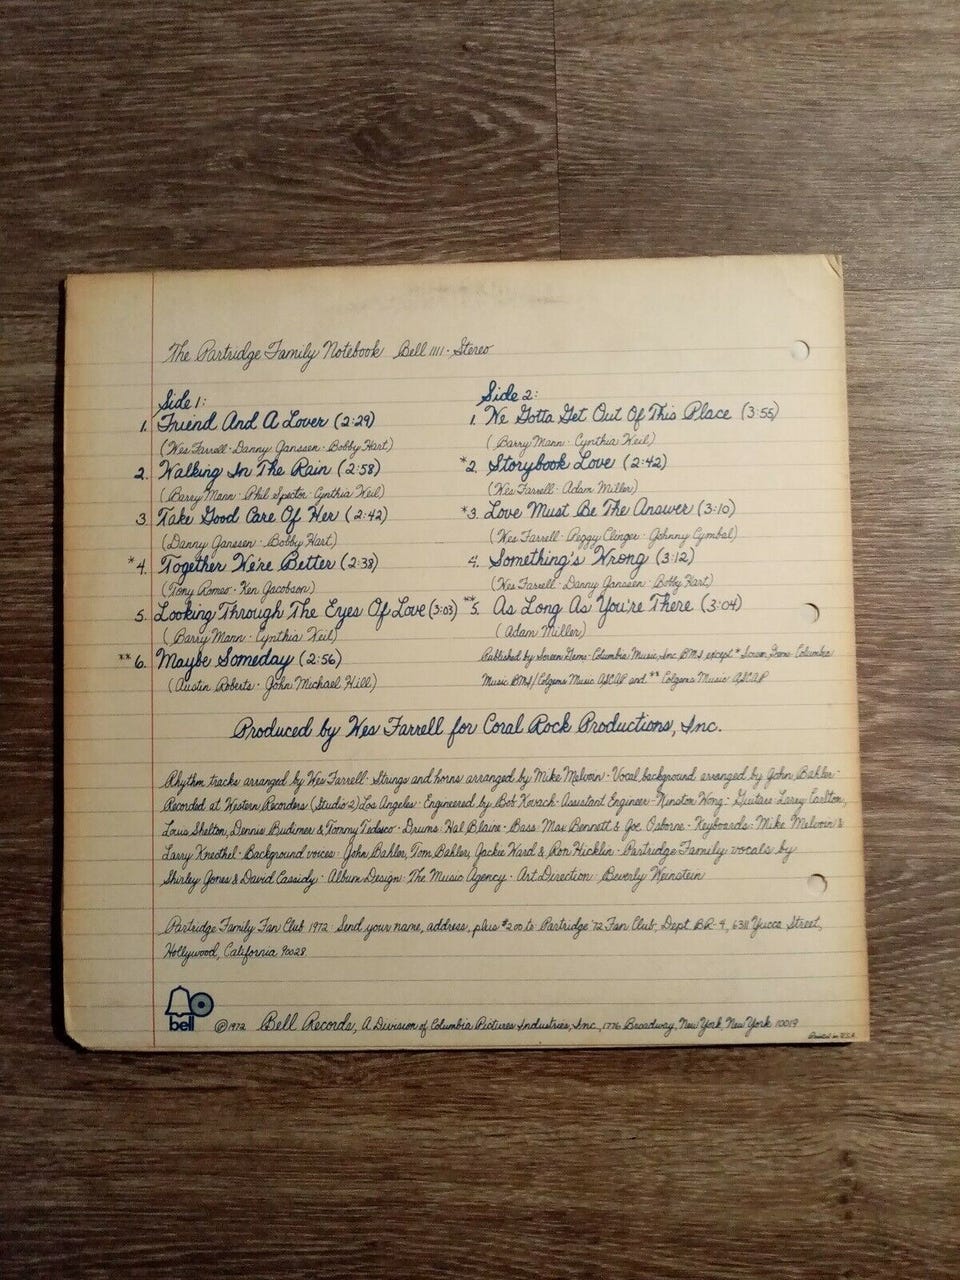 The Partridge Family Notebook Bell 1111 · Stereo
Side 1:
1. Friend And A Lover (2:29)
(Wes Farrell · Danny Janssen · Bobby Hart)
2. Walking In The Rain (2:58)
(Barry Mann · Phil Spector · Cynthia Weil)
3. Take Good Care Of Her (2:42)
(Danny Janssen · Bobby Hart)
*4. Together We're Better (2:38)
(Tony Romeo · Ken Jacobson)
5. Looking Through The Eyes Of Love (3:03)
(Barry Mann · Cynthia Weil)
**6. Maybe Someday (2:56)
(Austin Roberts · John Michael Hill)
Side 2:
1. We Gotta Get Out Of This Place (3:55)
(Barry Mann · Cynthia Weil)
*2. Storybook Love (2:42)
(Wes Farrell · Adam Miller)
*3. Love Must Be The Answer (3:10)
(Wes Farrell · Peggy Clinger · Johnny Cymbal)
4. Something's Wrong (3:12)
(Wes Farrell · Danny Janssen · Bobby Hart)
**5. As Long As You're There (3:04)
(Adam Miller)
Published by Screen Gems-Columbia Music, Inc. BMI, except * Screen Gems-Columbia
Music BMI/Colgems Music ASCAP and ** Colgems Music ASCAP
Produced by Wes Farrell for Coral Rock Productions, Inc.
Rhythm tracks arranged by Wes Farrell · Strings and horns arranged by Mike Melvoin · Vocal background arranged by John Bahler ·
Recorded at Western Recorders (Studio 2) Los Angeles · Engineered by Bob Kovack · Assistant Engineer · Winston Wong · Guitars: Larry Carlton,
Louis Shelton, Dennis Budimer & Tommy Tedesco · Drums: Hal Blaine · Bass: Max Bennett & Joe Osborne · Keyboards: Mike Melvoin &
Larry Knechtel · Background voices: John Bahler, Tom Bahler, Jackie Ward & Ron Hicklin · Partridge Family vocals by
Shirley Jones & David Cassidy · Album Design: The Music Agency · Art Direction: Beverly Weinstein
Partridge Family Fan Club 1972: Send your name, address, plus $2.00 to: Partridge '72 Fan Club, Dept. BR-4, 6311 Yucca Street,
Hollywood, California 90028
bell
©1972 Bell Records, A Division of Columbia Pictures Industries, Inc., 1776 Broadway, New York, New York 10019
Printed in U.S.A.